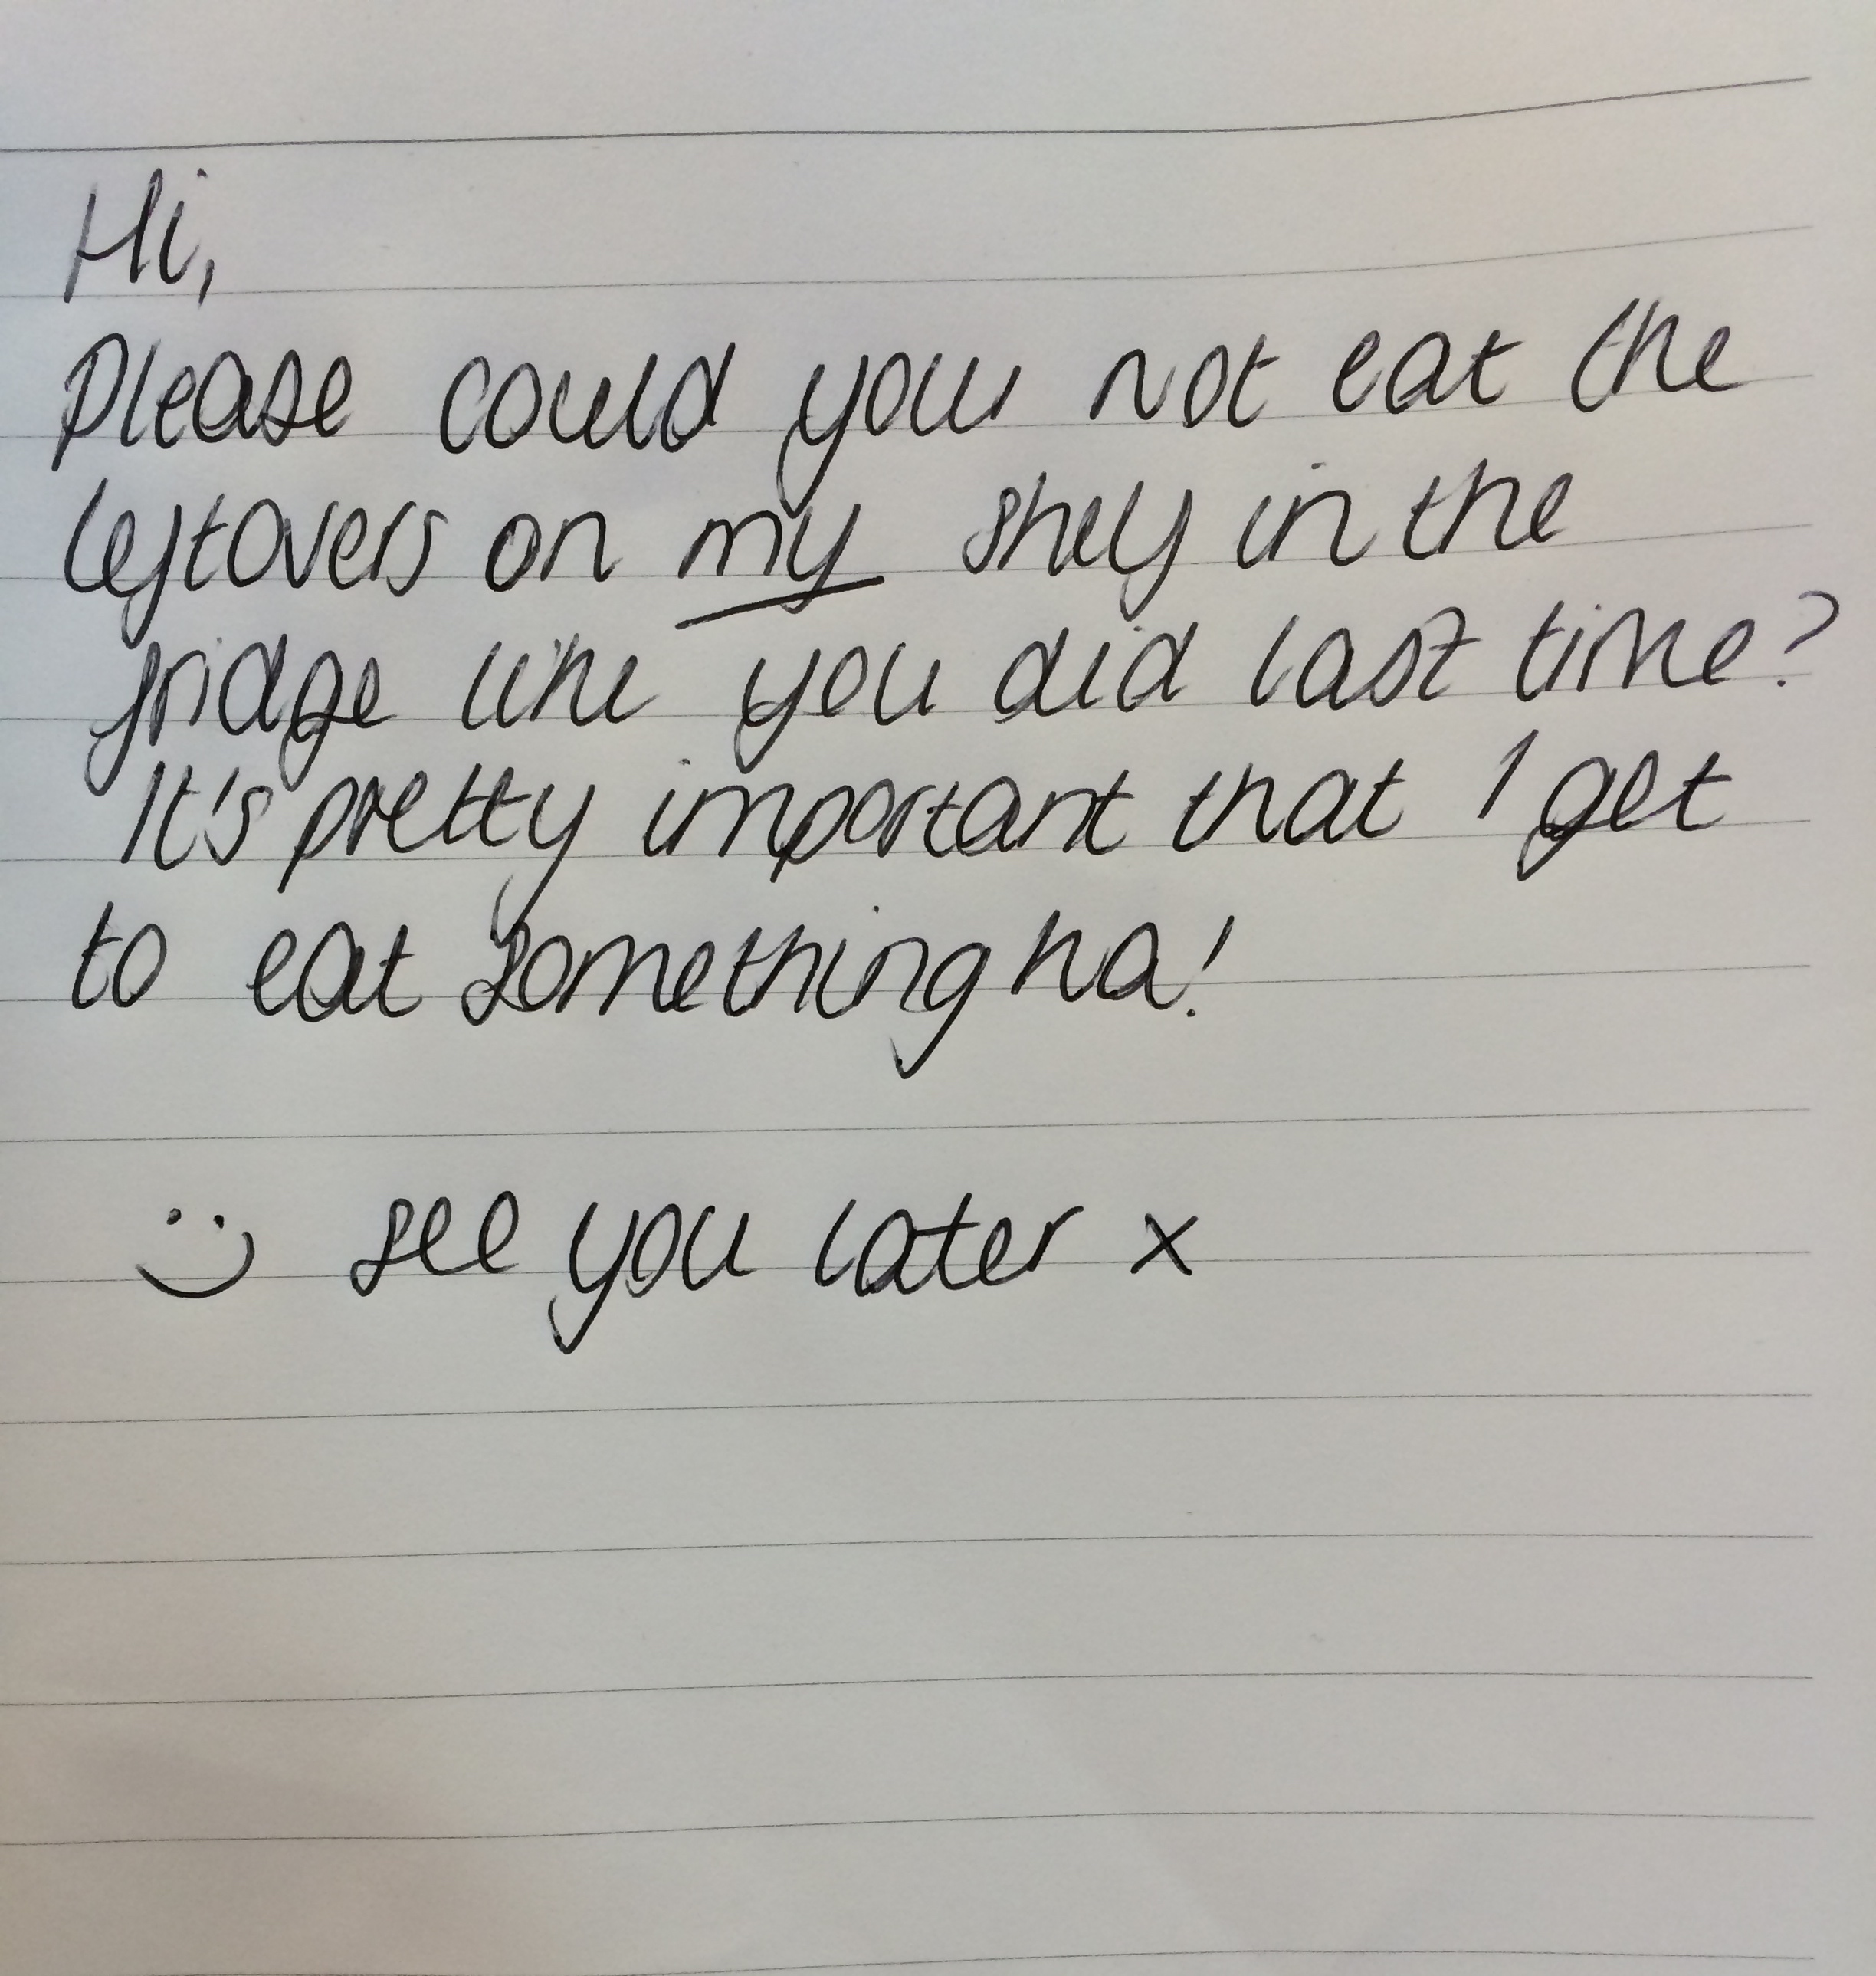 Hi,
Please could you not eat the
leftovers on my shelf in the
fridge like you did last time?
It's pretty important that I get
to eat something ha!
:) see you later x